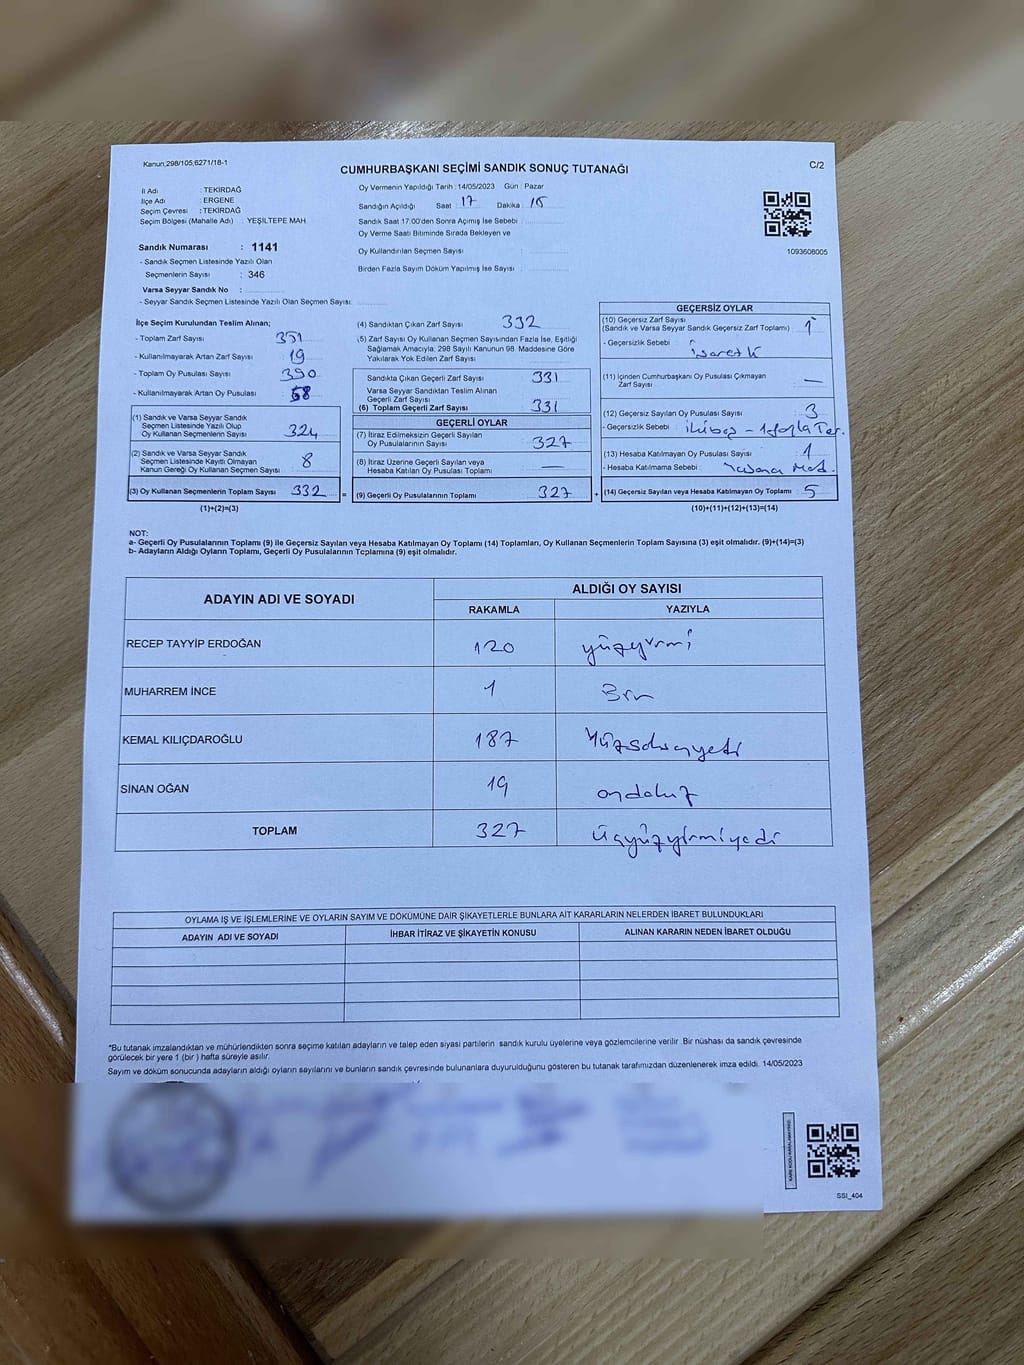 Kanun;298/105;6271/18-1
CUMHURBAŞKANI SEÇİMİ SANDIK SONUÇ TUTANAĞI
C/2
İl Adı : TEKİRDAĞ
İlçe Adı : ERGENE
Seçim Çevresi : TEKİRDAĞ
Seçim Bölgesi (Mahalle Adı) : YEŞİLTEPE MAH.
Oy Vermenin Yapıldığı Tarih : 14/05/2023 Gün : Pazar
Sandığın Açıldığı Saat 17 Dakika : 15
Sandık Saat 17:00'den Sonra Açımış İse Sebebi :
Oy Verme Saati Bitiminde Sırada Bekleyen ve
Oy Kullandırılan Seçmen Sayısı
Birden Fazla Sayım Döküm Yapılmış İse Sayısı :
1093608005
Sandık Numarası : 1141
- Sandık Seçmen Listesinde Yazılı Olan
Seçmenlerin Sayısı : 346
Varsa Seyyar Sandık No :
- Seyyar Sandık Seçmen Listesinde Yazılı Olan Seçmen Sayısı:
İlçe Seçim Kurulundan Teslim Alınan;
- Toplam Zarf Sayısı 351
- Kullanılmayarak Artan Zarf Sayısı : 19
- Toplam Oy Pusulası Sayısı : 390
- Kullanılmayarak Artan Oy Pusulası : 58
(1) Sandık ve Varsa Seyyar Sandık
Seçmen Listesinde Yazılı Olup
Oy Kullanan Seçmenlerin Sayısı 324
(2) Sandık ve Varsa Seyyar Sandık
Seçmen Listesinde Kayıtlı Olmayan
Kanun Gereği Oy Kullanan Seçmen Sayısı 8
(3) Oy Kullanan Seçmenlerin Toplam Sayısı 332 =
(1)+(2)=(3)
(4) Sandıktan Çıkan Zarf Sayısı 332
(5) Zarf Sayısı Oy Kullanan Seçmen Sayısından Fazla İse, Eşitliği
Sağlamak Amacıyla; 298 Sayılı Kanunun 98. Maddesine Göre
Yakılarak Yok Edilen Zarf Sayısı
Sandıkta Çıkan Geçerli Zarf Sayısı 331
Varsa Seyyar Sandıktan Teslim Alınan
Geçerli Zarf Sayısı
(6) Toplam Geçerli Zarf Sayısı 331
GEÇERLİ OYLAR
(7) İtiraz Edilmeksizin Geçerli Sayılan
Oy Pusulalarının Sayısı 327
(8) İtiraz Üzerine Geçerli Sayılan veya
Hesaba Katılan Oy Pusulası Toplamı —
(9) Geçerli Oy Pusulalarının Toplamı 327 +
GEÇERSİZ OYLAR
(10) Geçersiz Zarf Sayısı
(Sandık ve Varsa Seyyar Sandık Geçersiz Zarf Toplamı) : 1
- Geçersizlik Sebebi :
(11) İçinden Cumhurbaşkanı Oy Pusulası Çıkmayan
Zarf Sayısı : —
(12) Geçersiz Sayılan Oy Pusulası Sayısı : 3
- Geçersizlik Sebebi :
(13) Hesaba Katılmayan Oy Pusulası Sayısı : 1
- Hesaba Katılmama Sebebi :
(14) Geçersiz Sayılan veya Hesaba Katılmayan Oy Toplamı : 5
(10)+(11)+(12)+(13)=(14)
NOT:
a- Geçerli Oy Pusulalarının Toplamı (9) ile Geçersiz Sayılan veya Hesaba Katılmayan Oy Toplamı (14) Toplamları, Oy Kullanan Seçmenlerin Toplam Sayısına (3) eşit olmalıdır. (9)+(14)=(3)
b- Adayların Aldığı Oyların Toplamı, Geçerli Oy Pusulalarının Toplamına (9) eşit olmalıdır.
ADAYIN ADI VE SOYADI ALDIĞI OY SAYISI
RAKAMLA YAZIYLA
RECEP TAYYİP ERDOĞAN 120 yüzyirmi
MUHARREM İNCE 1 Bir
KEMAL KILIÇDAROĞLU 187 Yüzseksenyedi
SİNAN OĞAN 19 ondokuz
TOPLAM 327 üçyüzyirmiyedi
OYLAMA İŞ VE İŞLEMLERİNE VE OYLARIN SAYIM VE DÖKÜMÜNE DAİR ŞİKAYETLERLE BUNLARA AİT KARARLARIN NELERDEN İBARET BULUNDUKLARI
ADAYIN ADI VE SOYADI İHBAR İTİRAZ VE ŞİKAYETİN KONUSU ALINAN KARARIN NEDEN İBARET OLDUĞU
*Bu tutanak imzalandıktan ve mühürlendikten sonra seçime katılan adayların ve talep eden siyasi partilerin sandık kurulu üyelerine veya gözlemcilerine verilir. Bir nüshası da sandık çevresinde
görülecek bir yere 1 (bir) hafta süreyle asılır.
Sayım ve döküm sonucunda adayların aldığı oyların sayılarını ve bunların sandık çevresinde bulunanlara duyurulduğunu gösteren bu tutanak tarafımızdan düzenlenerek imza edildi. 14/05/2023
SSI_404